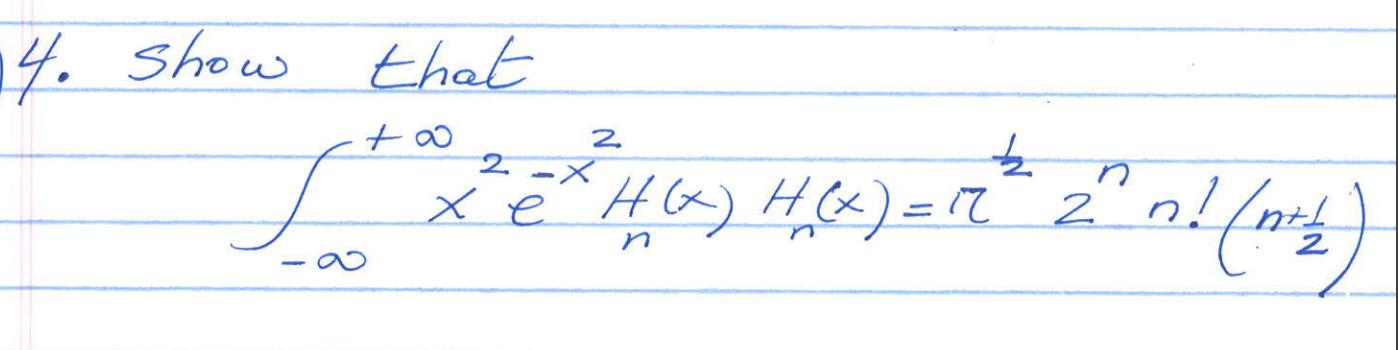 4. Show that
∫_{-∞}^{+∞} x² e^{-x²} H_n(x) H_n(x) = π^{1/2} 2^n n! (n+1/2)